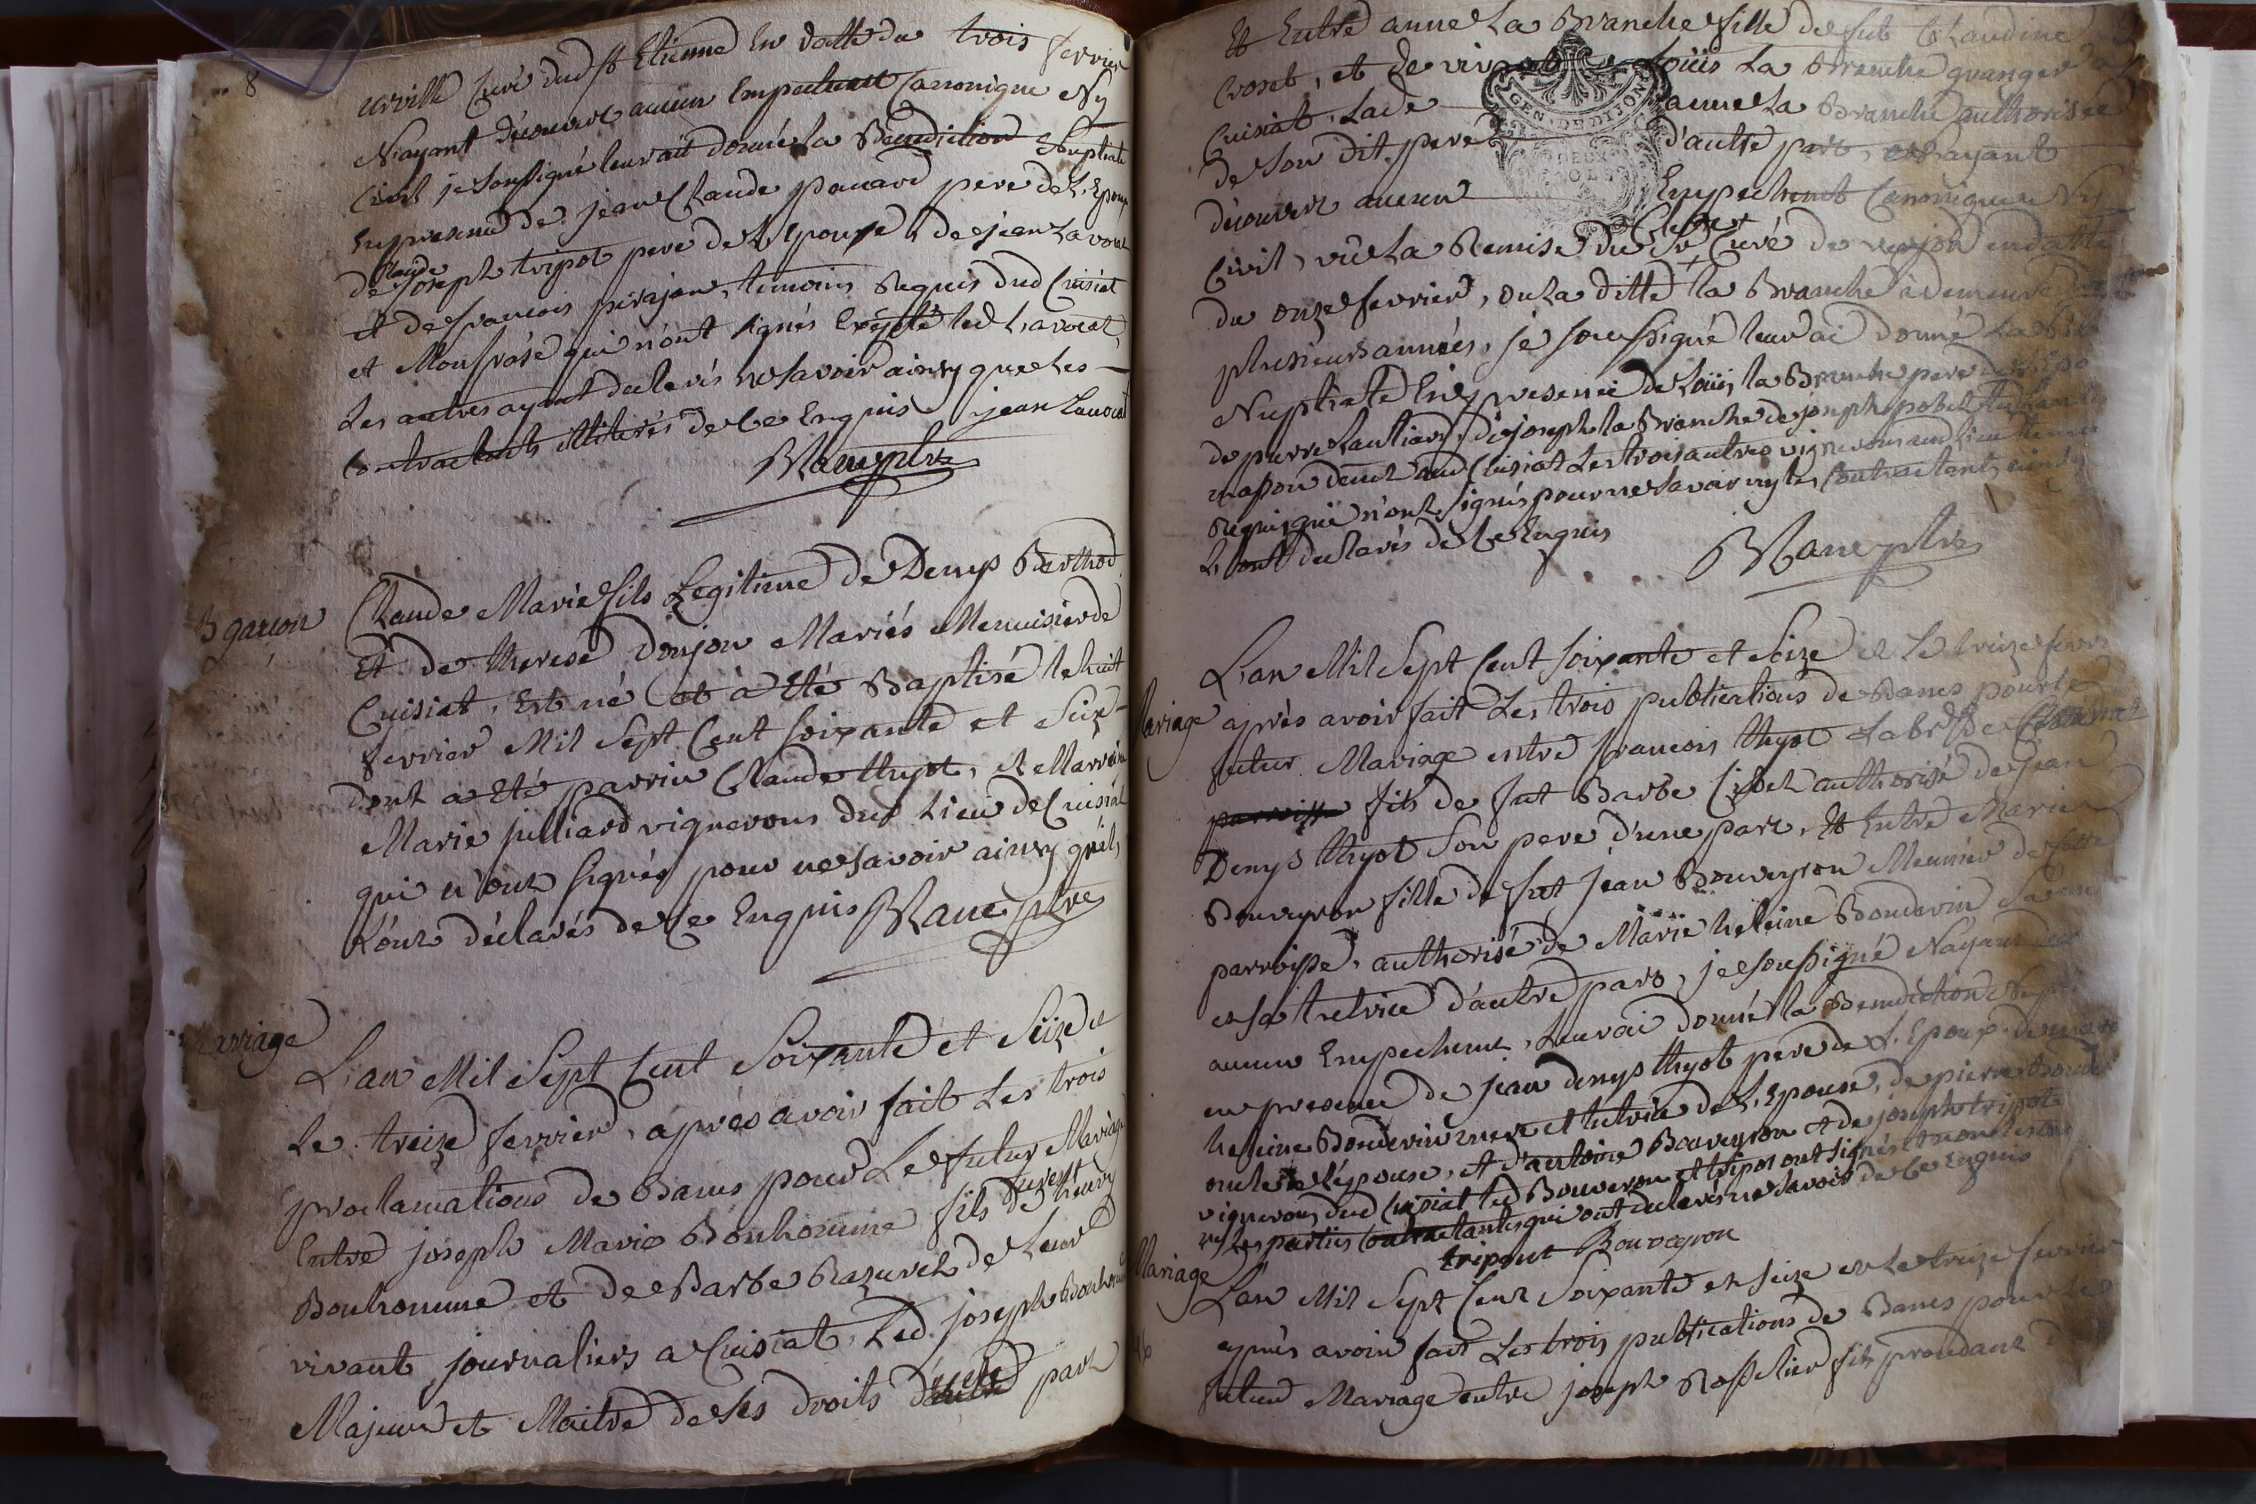 8
Curé dud st Etienne En datte du trois fevrier
N'ayant découvert aucun Empechement Canonique Ny
Civil je soussigné leur ait donné la Benediction Nuptiale
En presence de jean Claude panard pere de L'Epoux
Claude
de joseph tripot pere de L'Epouse, de jean Lavocat
et de francois temoins Requis dud Cuisiat
et qui n'ont signés Excepté led Lavocat,
Les autres ayant declarés ne savoir ainsy que les
Contractants illiterés de Ce Enquis jean Lavocat
Mane ptre
B garcon
Claude Marie fils Legitime de Denys Berthod
Et de therese Donjon Mariés Menuisier de
Cuisiat, Est né et à Eté Baptisé le huit
fevrier Mil Sept Cent soixante et Seize
dont a Eté parrin Claude thyot, et Marraine
Marie julliard vignerons dud Lieu de Cuisiat
qui n'ont signés pour ne savoir ainsy qu'ils
L'ont déclarés de Ce Enquis Mane ptre
Mariage
L'an Mil Sept Cent Soixante et Seize et
Le treize fevrier, après avoir fait Les trois
proclamations de Bancs pour Le futur Mariage
Entre joseph Marie Bonhomme fils de henry
Bonhomme et de Barbe Razurel de Leur
vivant journaliers a Cuisiat, Led joseph Bonhomme
Majeur et Maitre de ses droits d'une part
Et Entre anne La Branche fille de fut Claudine
Croset, et de vivant Loüis La Branche granger a
Cuisiat, Lade anne La Branche authorisée
de son dit pere d'autre part, n'ayant
GEN. DE DIJON
DEUX
SOLS
découvert aucun Empechement Canonique Ny
Civil, vû La Remise du Sr Curé de verjon en datte
du onze fevrier, ou La ditte la Branche à demeuré
plusieurs années, je soussigné leur ai donné La
Nuptiale En presence de Loüis la Branche pere de L'Epouse
de pierre, de joseph la Branche de joseph
Cuisiat Les trois autres vignerons
Requis qui n'ont signés pour ne savoir ny les Contractants ainsy
L'ont declarés de Ce Enquis
Mane ptre
Mariage
L'an Mil Sept Cent soixante et Seize et Le treize fevrier
après avoir fait Les trois publications de Bancs pour le
futur Mariage entre francois thyot
parroisse fils de fut Barbe authorisé de jean
Denys thyot Son pere d'une part, Et Entre Marie
Bouveyron fille de fut jean Bouveyron Meunier de cette
parroisse, authorisé de Marie heleine Bondevin Sa mere
et sa tutrice d'autre part, je soussigné N'ayant
aucun Empechement, Leur ai donné la Benediction
en presence de jean denys thyot pere de L'Epoux de marie
heleine Bondevin mere et tutrice de L'Epouse, de pierre
oncle de l'épouse, et d'antoine Bouveyron et de joseph tripot
vignerons dud Cuisiat led Bouveron et tripot ont signés et non
les parties Contractantes qui ont declarés ne savoir de Ce Enquis
tripout Bouveyron
Mariage
L'an Mil Sept Cent Soixante et seize et Le treize fevrier
après avoir fait Les trois publications de Bancs pour Le
futur Mariage entre joseph